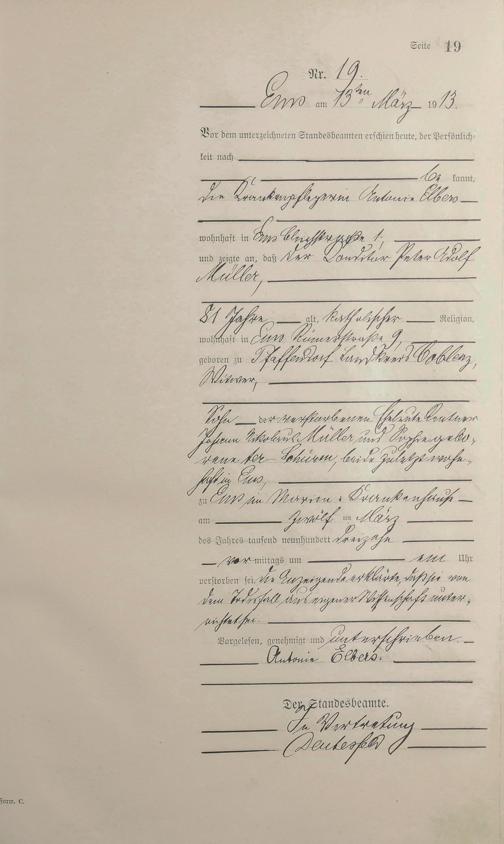 Seite 19
Nr. 19.
Ems am 13ten März 1913.
Vor dem unterzeichneten Standesbeamten erschien heute, der Persönlich-
keit nach
be kannt,
die Krankenpflegerin Antonie Elbers
wohnhaft in Ems
und zeigte an, daß der Conditor Peter Adolf
Müller,
81 Jahre alt, katholischer Religion,
wohnhaft in Ems Römerstraße 9,
geboren zu Pfaffendorf Landkreis Coblenz,
Witwer,
Sohn der verstorbenen Eheleute Rentner
Johann Nikolaus Müller und Sophie gebo-
rene beide zuletzt wohn-
haft in Ems,
zu Ems im Marien-Krankenhause
am zwölf ten März
des Jahres tausend neunhundert dreizehn
vor mittags um ein Uhr
verstorben sei. Die Anzeigende erklärte, daß sie von
dem Todesfall aus eigener Wissenschaft unter-
richtet sei.
Vorgelesen, genehmigt und unterschrieben.
Antonie Elbers.
Der Standesbeamte.
In Vertretung
Form. C.